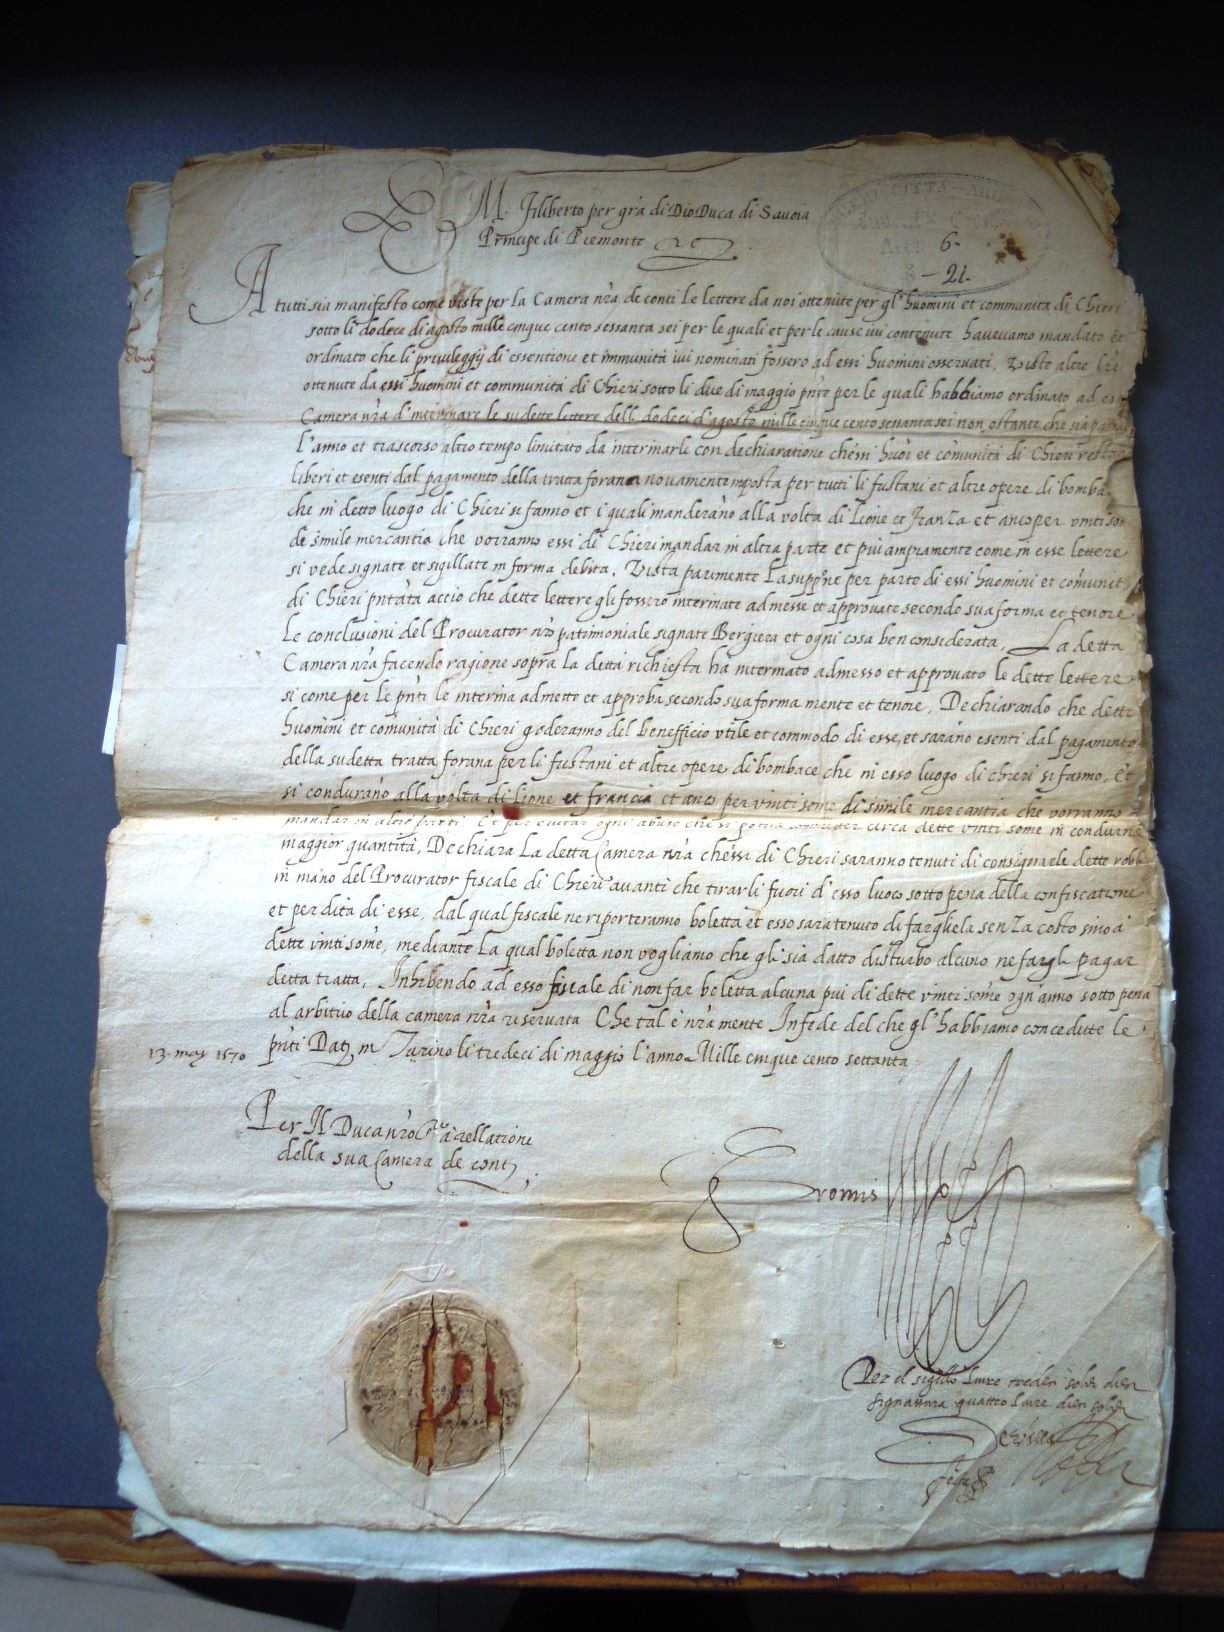 EM. Filiberto per gra di Dio Duca di Savoia
Principe di Piemonte
6.
8 - 21.
A tutti sia manifesto come viste per la Camera nra de conti le lettere da noi ottenute per gl'huomini et communita di Chieri
sotto li dodece di agosto mille cinque cento sessanta sei per le quali et per le cause ivi contenute havevamo mandato et
ordinato che li privileggij di essentione et immunità ivi nominati fossero ad essi huomini osservati. Visto altre lre
ottenute da essi huomini et communità di Chieri sotto li due di maggio pnte per le quali habbiamo ordinato ad essa
Camera nra d'interinare le sudette lettere delli dodeci d'agosto mille cinque cento sessanta sei non ostante che sia passato
l'anno et trascorso altro tempo limitato da interinarle con dechiaratione ch'essi huoi et comunità di Chieri restano
liberi et esenti dal pagamento della tratta foranea novamente imposta per tutti li fustani et altre opere di bomba
che in detto luogo di Chieri si fanno et i quali manderano alla volta di Lione et Franza et anco per vinti some
de simile mercantia che vorranno essi di Chieri mandar in altra parte et piu ampiamente come in esse lettere
si vede signate et sigillate in forma debita. Vista parimente la suppne per parte di essi huomini et comunità
di Chieri pntata accio che dette lettere gli fossero interinate admesse et approvate secondo sua forma et tenore
Le conclusioni del Procurator nro patrimoniale signate Bergiera et ogni cosa ben considerata, La detta
Camera nra facendo ragione sopra la detta richiesta ha interinato admesso et approvato le dette lettere
si come per le pnti le interina admette et approba secondo sua forma mente et tenore, Dechiarando che detti
huomini et comunità di Chieri goderanno del benefficio utile et commodo di esse, et sarano esenti dal pagamento
della sudetta tratta forana per li fustani et altre opere di bombace che in esso luogo di chieri si fanno, Et
si condurano alla volta di Lione et francia et anco per vinti some di simile mercantia che vorranno
mandar in altre parti. Et per evitar ogni abuso che si potria commetter circa dette vinti some in condurne
maggior quantità, Dechiara la detta Camera nra ch'essi di Chieri saranno tenuti di consignarle dette robbe
in mano del Procurator fiscale di Chieri avanti che tirarli fuori d'esso luoco sotto pena della confiscatione
et perdita di esse, dal qual fiscale ne riporteranno boletta et esso sara tenuto di farghela senza costo sino a
dette vinti some, mediante la qual boletta non vogliamo che gli sia datto disturbo alcuno ne fargli pagar
detta tratta, Inhibendo ad esso fiscale di non far boletta alcuna piu di dette vinti some ogn'anno sotto pena
al arbitrio della camera nra riservata Che tal è nra mente Infede del che gl'habbiamo concedutte le
13. may 1570
pnti Dat in Turino li tredeci di maggio l'anno Mille cinque cento settanta
Per Il Duca nro à rellatione
della sua Camera de conti
Fromis
Per il sigillo livre tredeci soldi dieci
signatura quattro livre dieci soldi